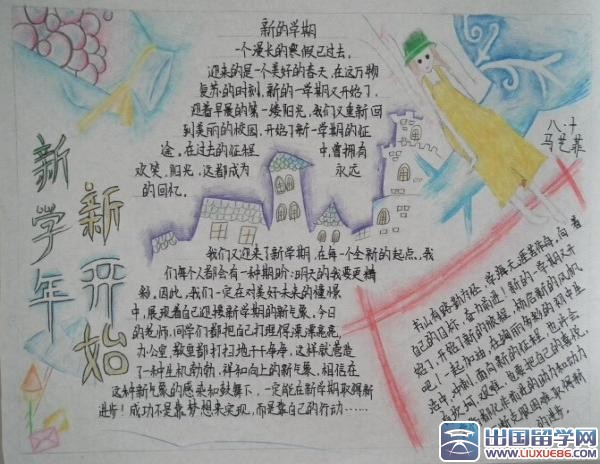 新的学期
一个漫长的寒假已过去，
迎来的是一个美好的春天，在这万物
复苏的时刻，新的一学期又开始了，
迎着早晨的第一缕阳光，我们又重新回
到美丽的校园，开始了新一学期的征
途，在过去的征程中，曾拥有
欢笑，阳光，这都成为永远
的回忆。
新学年
新开始
八、十
马艺菲
我们又迎来了新学期，在每一个全新的起点，我
们每个人都会有一种期盼：明天的我要更精
彩。因此，我们一定在对美好未来的憧憬
中，展现着自己迎接新学期的新气象，今日
的老师，同学们都把自己打理得漂漂亮亮，
办公室，教室都打扫地干干净净，这样就营造
了一种生机勃勃，祥和向上的新气象，相信在
这种新气象的感染和鼓舞下，一定能在新学期取得新
进步！成功不是靠梦想来实现，而是靠自己的行动……
书山有路勤为径，学海无涯苦作舟，向着
自己的目标，奋力前进！新的一学期又开
始了，开始了新的旅程，扬启新的风帆
吧！一起加油，在绚丽而多彩的初中生
活中，冲刺，面向新的征程，也许会
有坎坷，艰难，
进步。
出国留学网
WWW.LIUXUE86.COM